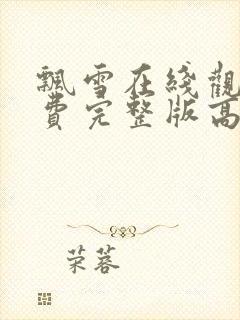 飄雪在綫觀
費完整版高
荣蓉